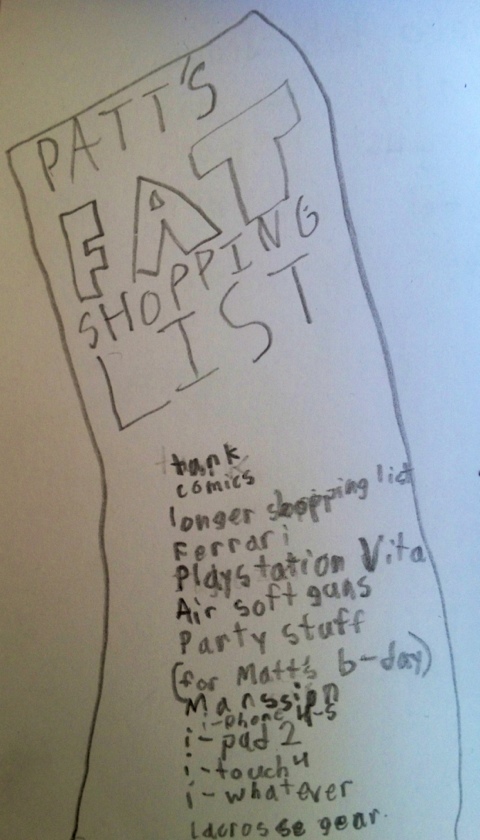 PATT'S
FAT
SHOPPING
LIST
tank
comics
longer shopping list
Ferrari
Playstation Vita
Air soft guns
Party stuff
(for Matt's b-day)
Manssion
i-phone 4-5
i-pad 2
i-touch 4
i-whatever
lacrosse gear.